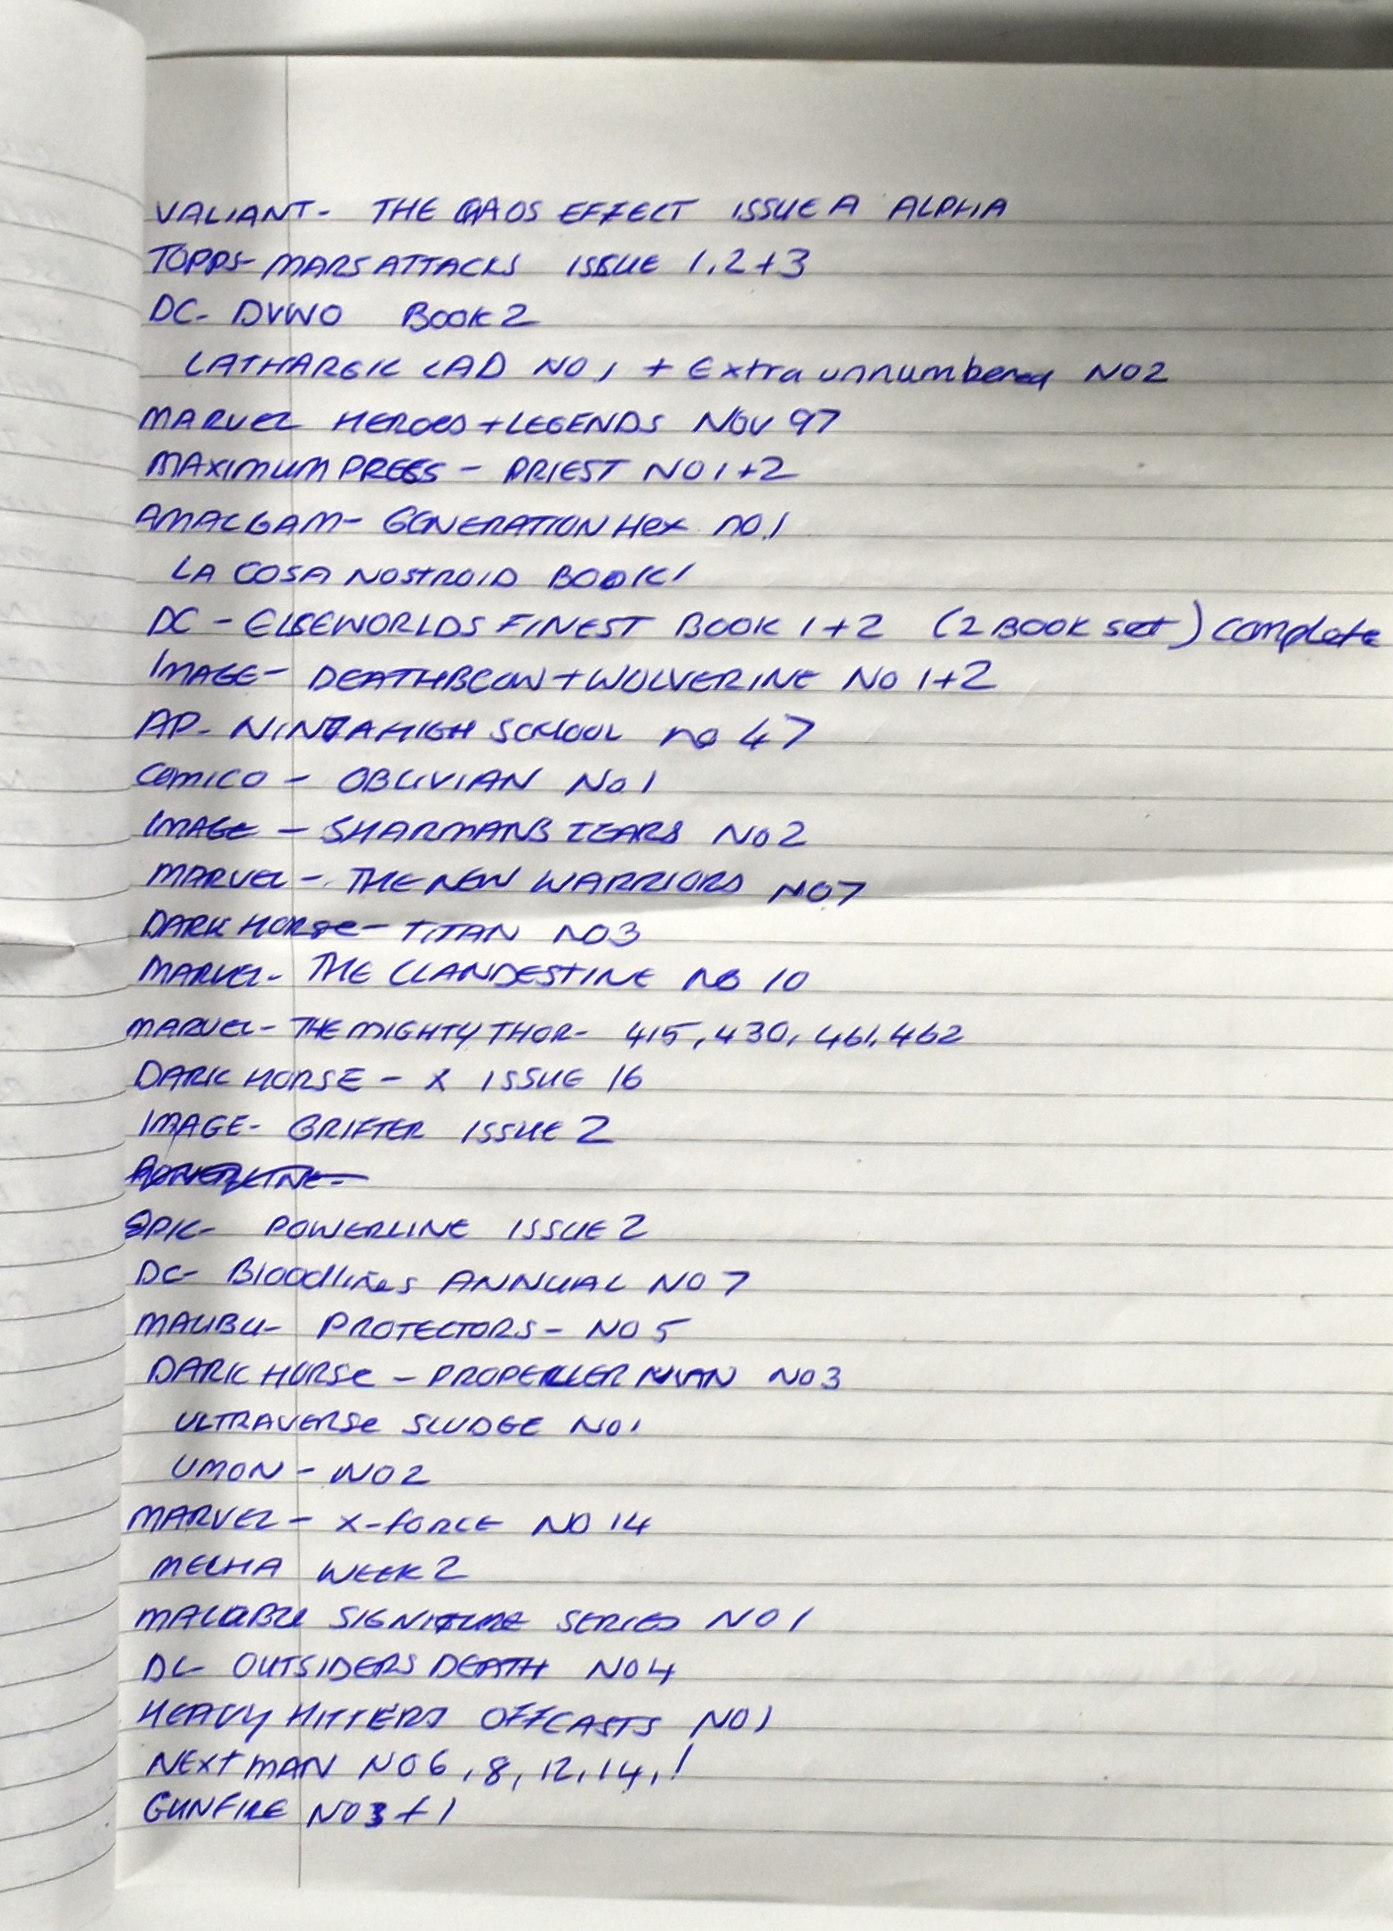 VALIANT- THE QAOS EFFECT ISSUE A ALPHA
TOPPS- MARS ATTACKS ISSUE 1,2+3
DC- DVWO BOOK 2
LATHARGIC LAD NO 1 + Extra unnumbered NO2
MARVEL HEROES+LEGENDS NOV 97
MAXIMUM PRESS - PRIEST NO 1+2
AMALGAM- GENERATION Hex no.1
LA COSA NOSTROID BOOK 1
DC - ELSEWORLDS FINEST BOOK 1+2 (2 BOOK set) complete
IMAGE- DEATHBLOW+WOLVERINE NO 1+2
AP- NINJA HIGH SCHOOL no 47
COMICO - OBLIVIAN No 1
IMAGE - SHARMANS TEARS No 2
MARVEL - THE NEW WARRIORS NO7
DARK HORSE - TITAN NO3
MARVEL- THE CLANDESTINE NO 10
MARVEL- THE MIGHTY THOR- 415, 430, 461, 462
DARK HORSE - X ISSUE 16
IMAGE- GRIFTER ISSUE 2
EPIC- POWERLINE ISSUE 2
DC- Bloodlines ANNUAL NO 7
MALIBU- PROTECTORS- NO 5
DARK HORSE - PROPELLER MAN NO3
ULTRAVERSE SLUDGE NO1
UMON - NO2
MARVEL - X-FORCE NO 14
MECHA WEEK 2
MALUBU SIGNITURE SERIES NO 1
DC OUTSIDERS DEATH NO4
HEAVY HITTERS OFFCASTS NO1
NEXT MAN NO6, 8, 12, 14, 1
GUNFIRE NO3+1